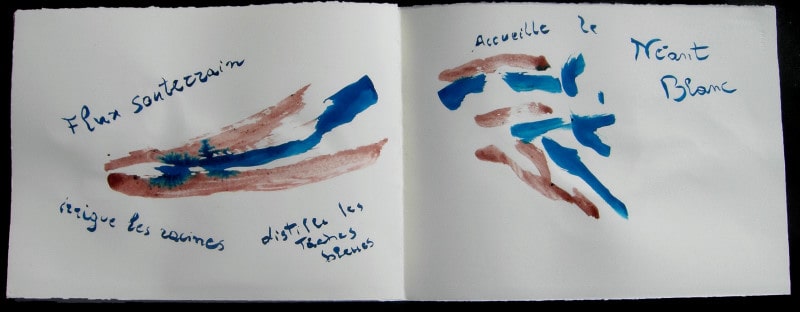 Flux souterrain
irrigue les racines
distille les
Taches
bleues
Accueille le
Néant
Blanc